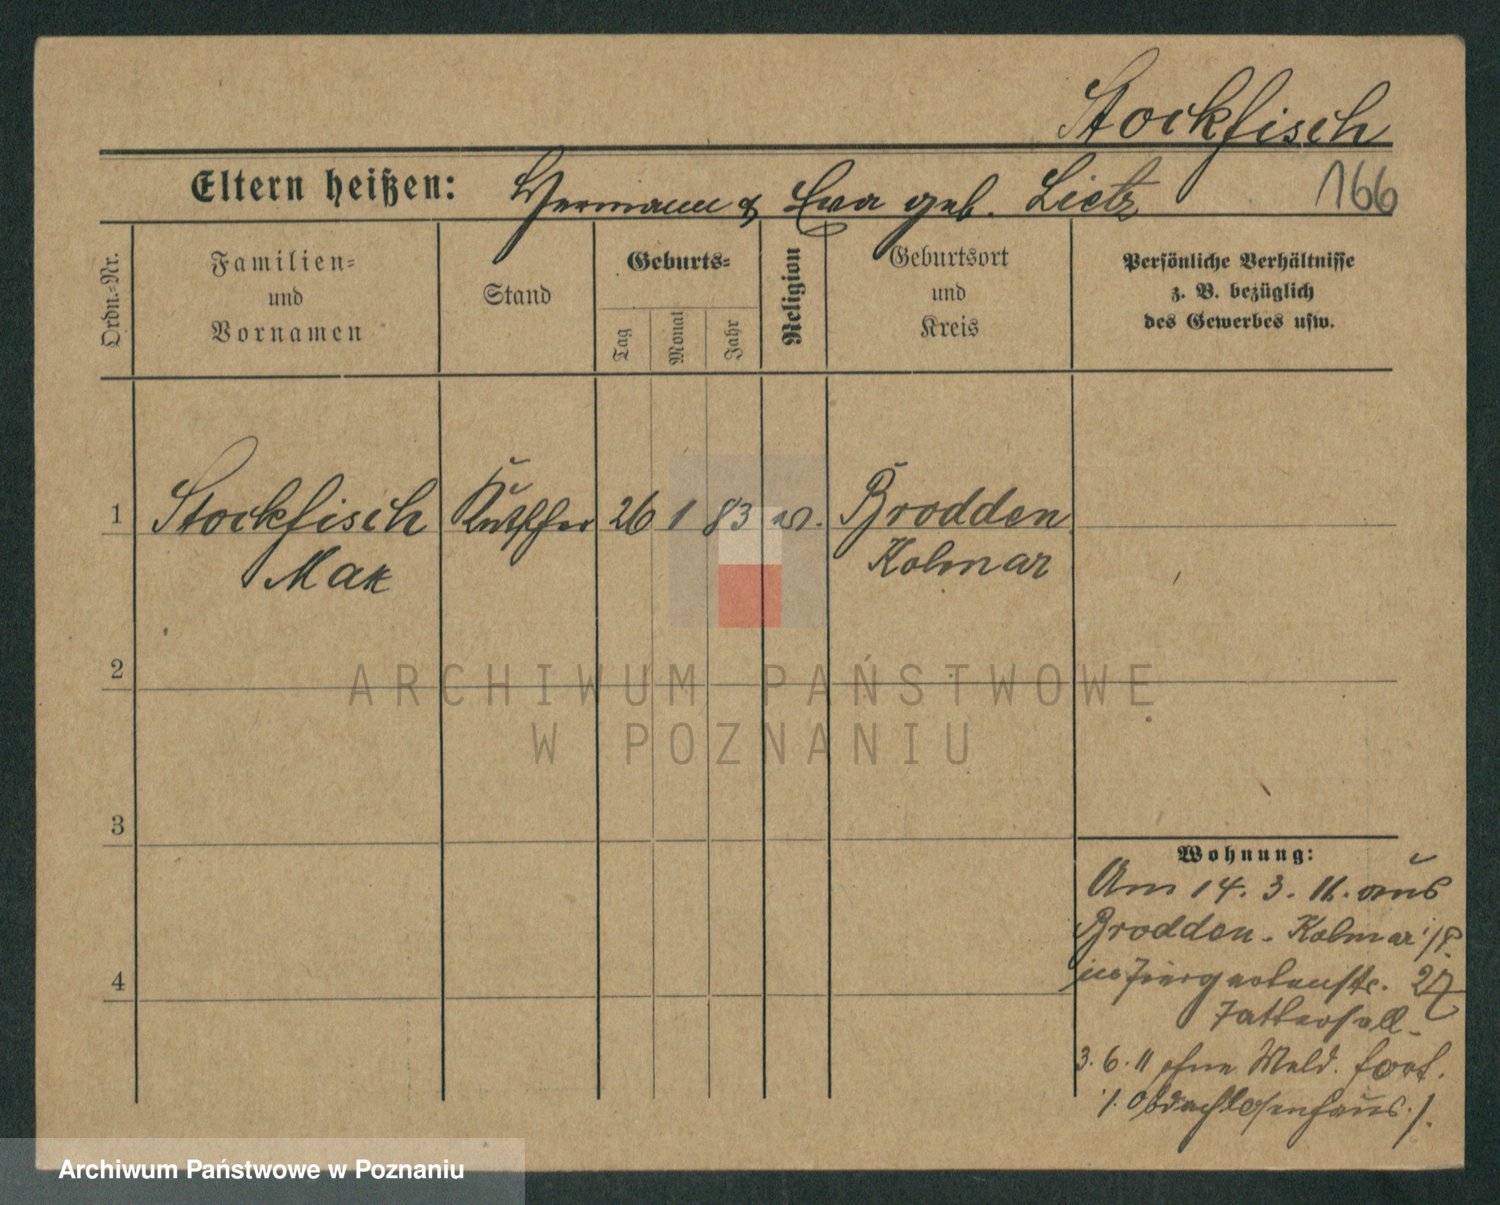 Stockfisch
Eltern heißen: Hermann & Eva geb. Lietz
166
Ordn.-Nr.
Familien-
und
Vornamen
Stand
Geburts-
Tag
Monat
Jahr
Religion
Geburtsort
und
Kreis
Persönliche Verhältnisse
z. B. bezüglich
des Gewerbes usw.
1 Stockfisch Kutscher 26 1 83 Brodden
Max Kolmar
2
ARCHIWUM PAŃSTWOWE
W POZNANIU
3
4
Wohnung:
Am 14. 3. 11. aus
Brodden - Kolmar i/P.
in 27
Tattersall.
3. 6. 11 ohne Meld. fort.
./. Obdachlosenhaus ./.
Archiwum Państwowe w Poznaniu